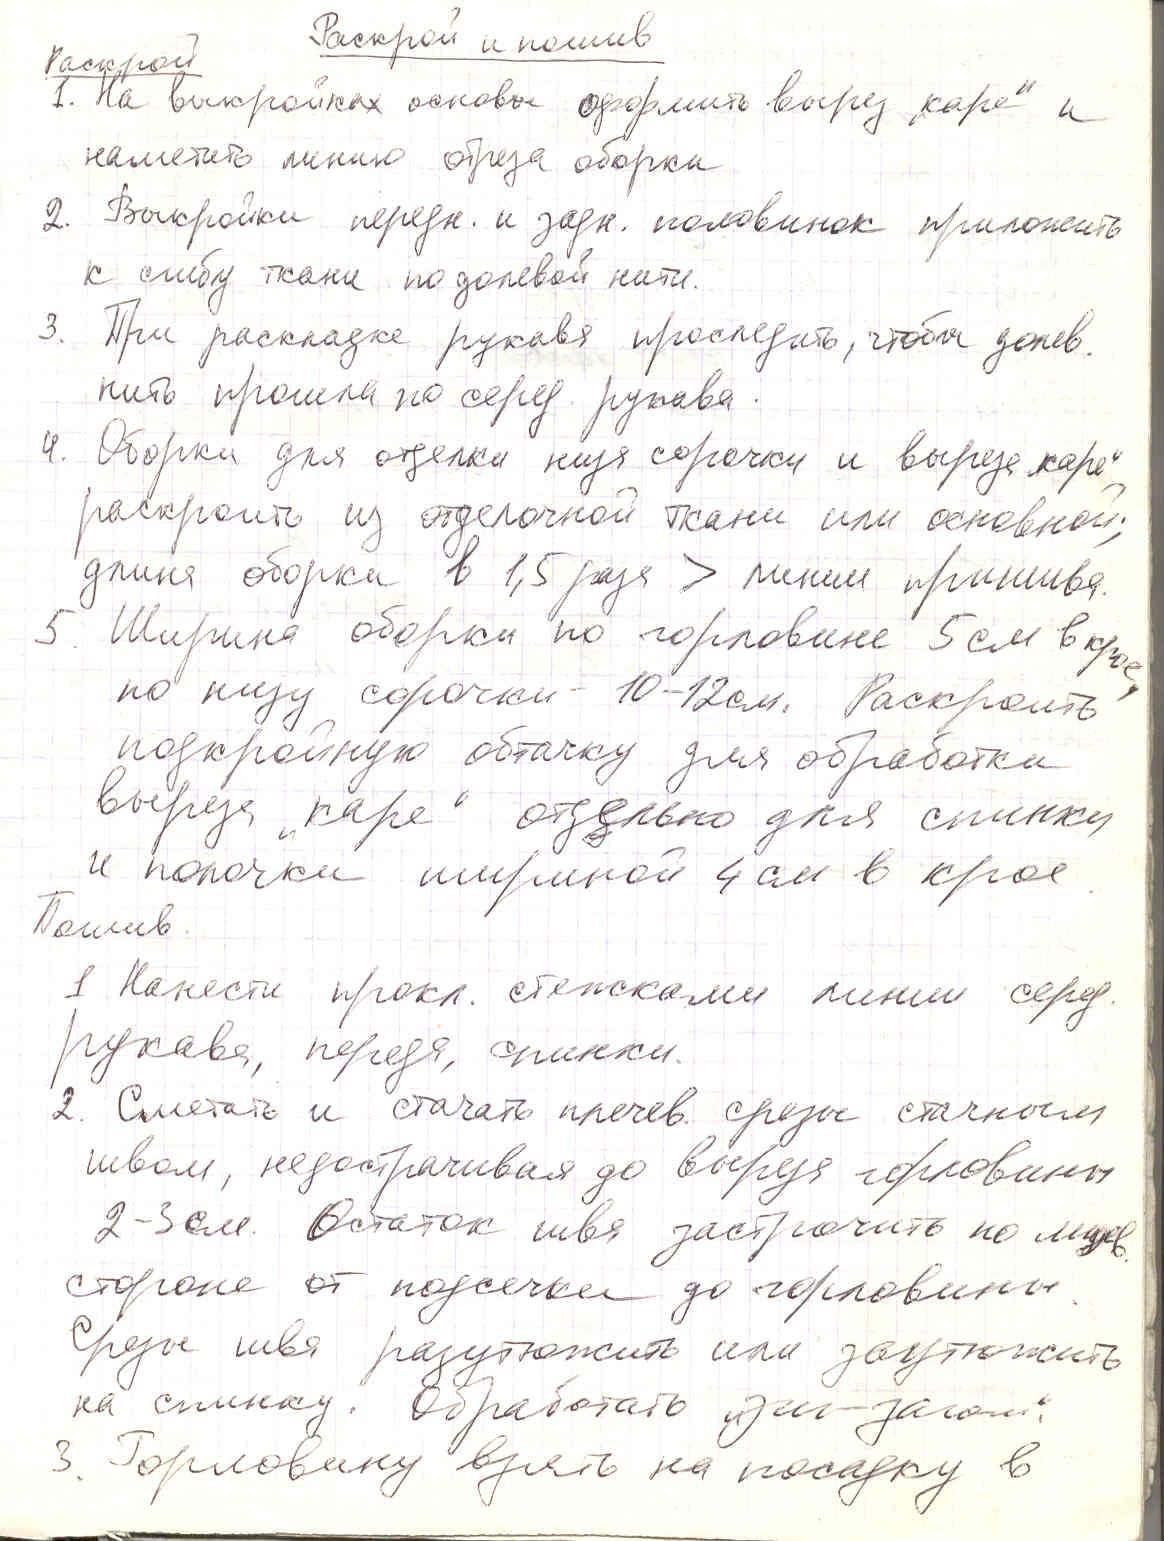 Раскрой и пошив
Раскрой
1. На выкройках основы оформить вырез „каре“ и
наметить линию отреза оборки
2. Выкройки передн. и задн. половинок приложить
к сгибу ткани по долевой нити.
3. При раскладке рукава проследить, чтобы долев.
нить прошла по серед. рукава.
4. Оборки для отделки низа сорочки и выреза „каре“
раскроить из отделочной ткани или основной;
длина оборки в 1,5 раза > линии пришива.
5. Ширина оборки по горловине 5 см в крое,
по низу сорочки - 10-12 см. Раскроить
подкройную обтачку для обработки
выреза „каре“ отдельно для спинки
и полочки шириной 4 см в крое.
Пошив.
1 Нанести прокл. стежками линии серед.
рукава, переда, спинки.
2. Сметать и стачать плечев. срезы стачным
швом, недострачивая до выреза горловины
2-3 см. Остаток шва застрочить по лицев.
стороне от подсечки до горловины.
Срезы шва разутюжить или заутюжить
на спинку. Обработать „зиг-загом“.
3. Горловину взять на посадку в